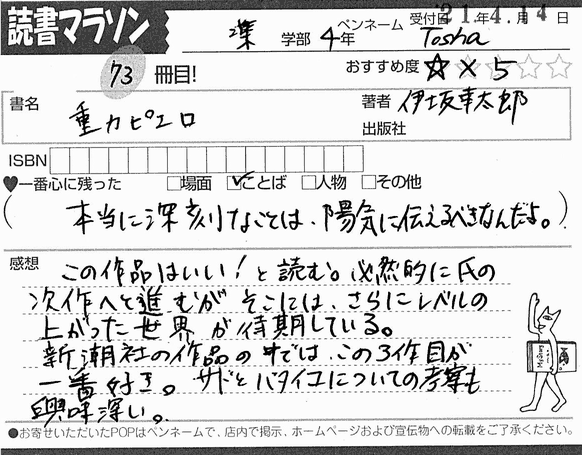 読書マラソン
学部 4年 ペンネーム Tosha 受付日 '21年4月14日
73 冊目! おすすめ度 ☆×5 ☆☆
書名 重力ピエロ 著者 伊坂幸太郎
出版社
ISBN
♥一番心に残った □場面 ☑ことば □人物 □その他
( 本当に深刻なことは、陽気に伝えるべきなんだよ。)
感想 この作品はいい!と読む。必然的に氏の
次作へと進むが そこには、さらにレベルの
上がった世界 が待期している。
新潮社の作品の中では、この3作目が
一番好き。サドとバタイユについての考察も
興味深い。
●お寄せいただいたPOPはペンネームで、店内で掲示、ホームページおよび宣伝物への転載をご了承ください。